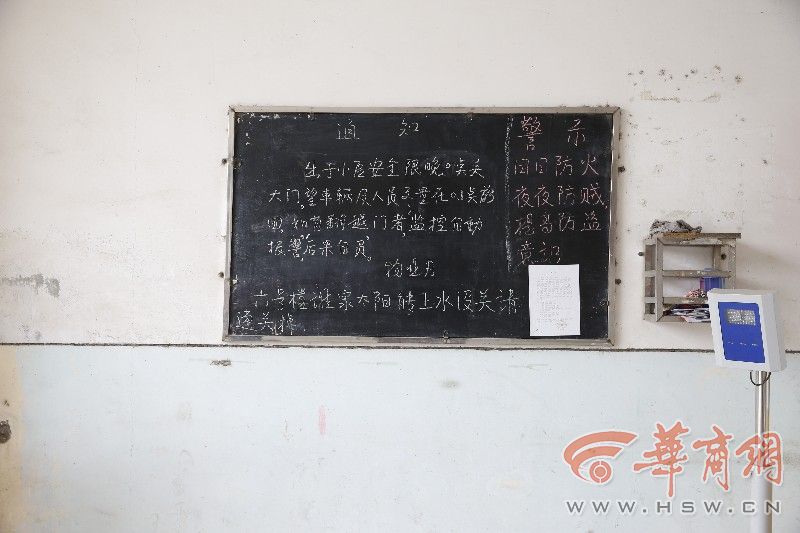 通知
出于小区安全限晚
大门,望车辆及人员尽量在
回,如有翻越门者,监控自动
报警,后果自负。
物业
六号楼谁家太阳能上水没关请
速关掉
警示
日日防火
夜夜防贼
提高防盗
意识
華商網
WWW.HSW.CN